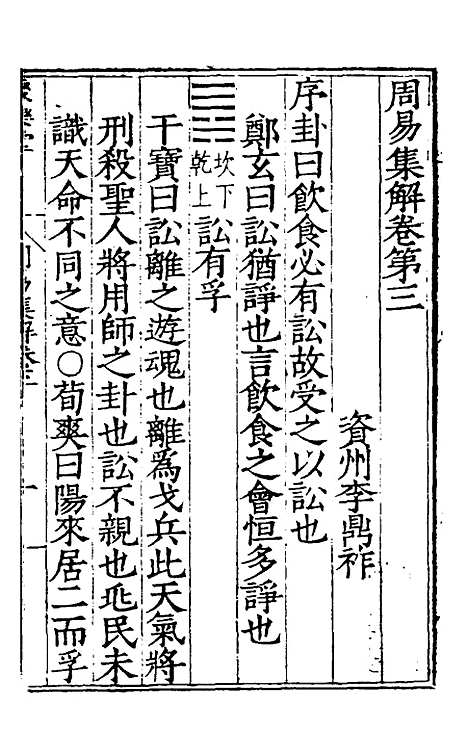 周易集解卷第三
資州李鼎祚
序卦曰飲食必有訟故受之以訟也
鄭玄曰訟猶諍也言飲食之會恒多諍也
䷅坎下乾上訟有孚
干寶曰訟離之遊魂也離為戈兵此天氣將
刑殺聖人將用師之卦也訟不親也兆民未
識天命不同之意〇荀爽曰陽來居二而孚